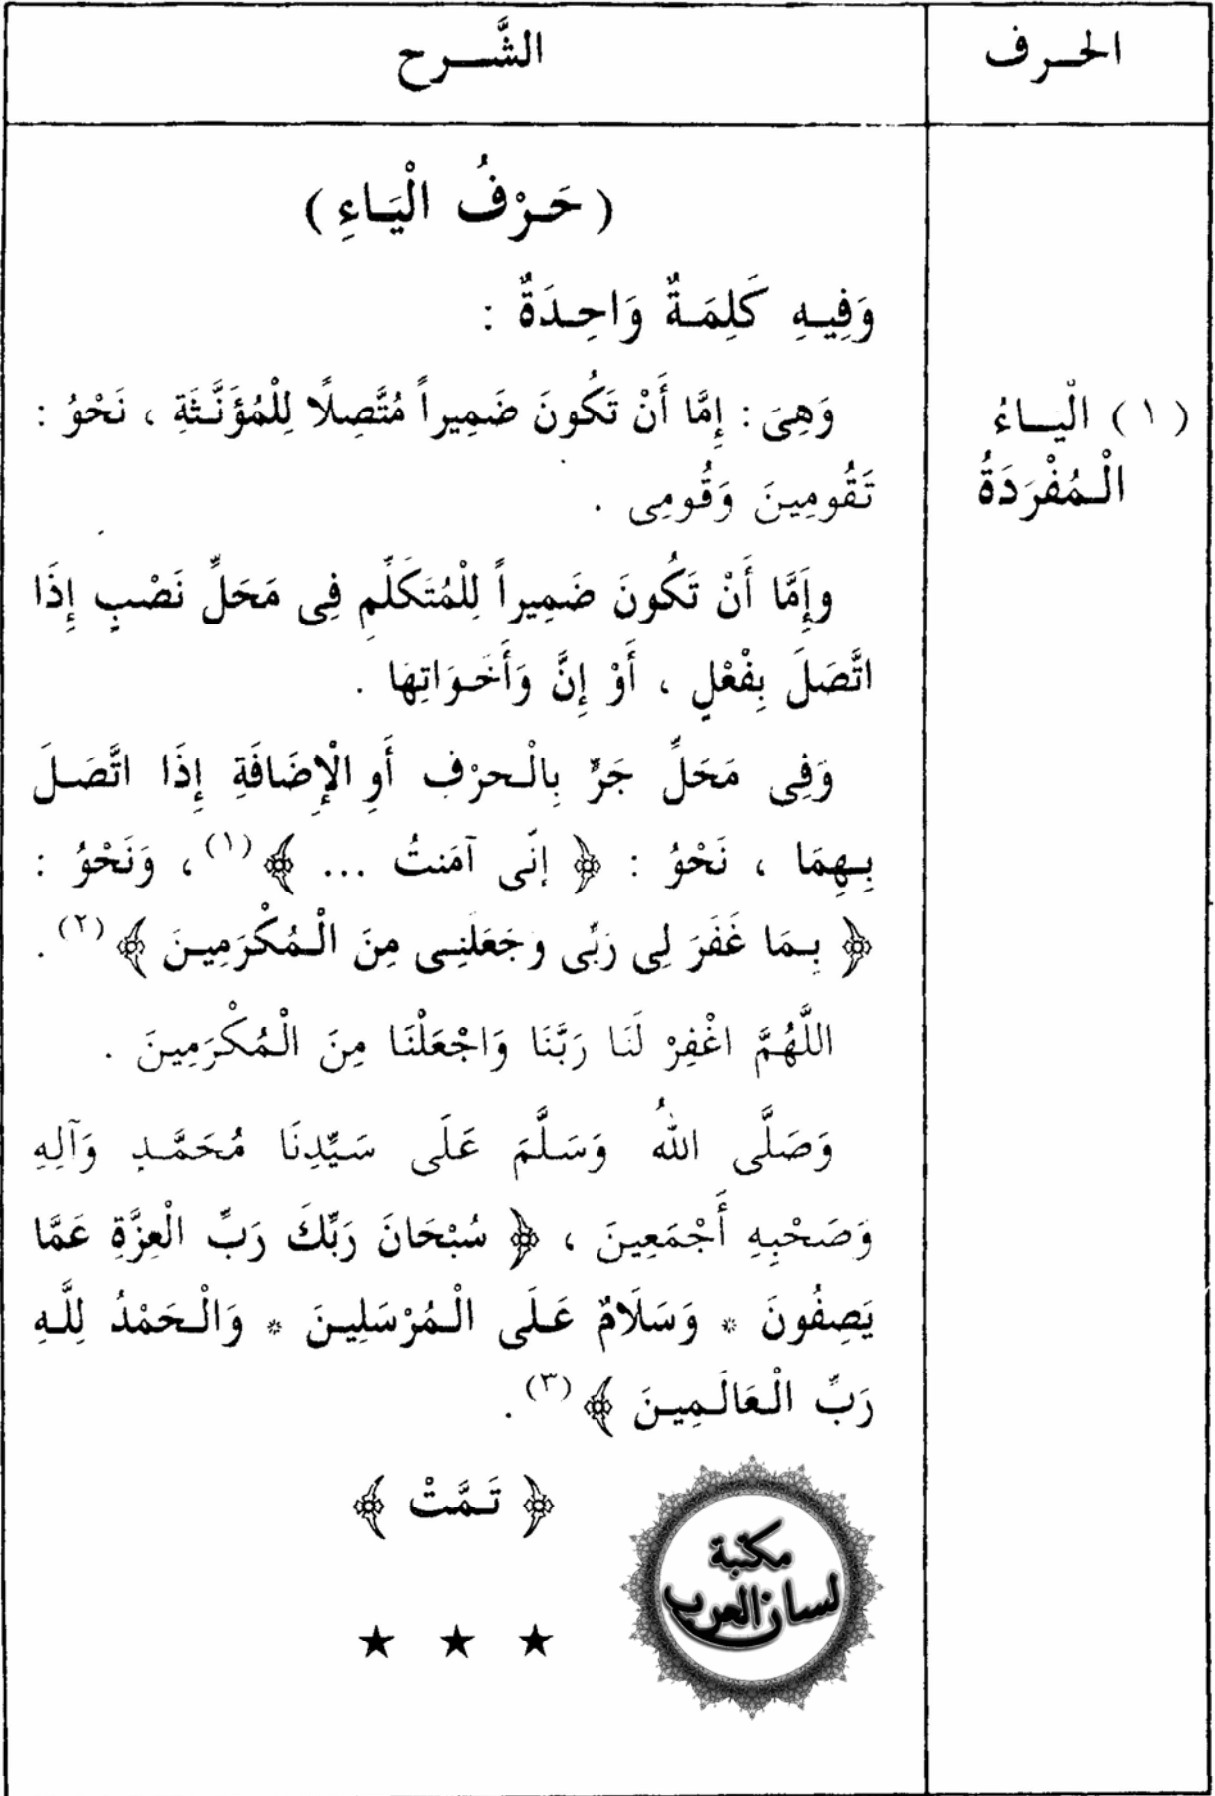 الحرف
الشَّرح
(حَرْفُ الْيَاءِ)
وَفِيهِ كَلِمَةٌ وَاحِدَةٌ :
(١) الْيَاءُ
الْمُفْرَدَةُ
وَهِىَ : إِمَّا أَنْ تَكُونَ ضَمِيراً مُتَّصِلًا لِلْمُؤَنَّثَةِ ، نَحْوُ :
تَقُومِينَ وَقُومِى .
وإَمَّا أَنْ تَكُونَ ضَمِيراً لِلْمُتَكَلِّمِ فِى مَحَلِّ نَصْبٍ إِذَا
اتَّصَلَ بِفْعْلٍ ، أَوْ إِنَّ وَأَخَوَاتِهَا .
وَفِى مَحَلِّ جَرٍّ بِالْحرْفِ أَوِ الْإِضَافَةِ إِذَا اتَّصَلَ
بِهِمَا ، نَحْوُ : ﴿ إنِّى آمَنتُ ... ﴾(١) ، وَنَحْوُ :
﴿ بِمَا غَفَرَ لِى رَبِّى وَجَعَلَنِى مِنَ الْمُكْرَمِينَ ﴾(٢) .
اللَّهُمَّ اغْفِرْ لَنَا رَبَّنَا وَاجْعَلْنَا مِنَ الْمُكْرَمِينَ .
وَصَلَّى اللهُ وَسَلَّمَ عَلَى سَيِّدِنَا مُحَمَّدٍ وَآلِهِ
وَصَحْبِهِ أَجْمَعِينَ ، ﴿ سُبْحَانَ رَبِّكَ رَبِّ الْعِزَّةِ عَمَّا
يَصِفُونَ * وَسَلَامٌ عَلَى الْمُرْسَلِينَ * وَالْحَمْدُ لِلَّهِ
رَبِّ الْعَالَمِينَ ﴾(٣) .
﴿ تَمَّتْ ﴾
مكتبة
لسان العرب
★ ★ ★